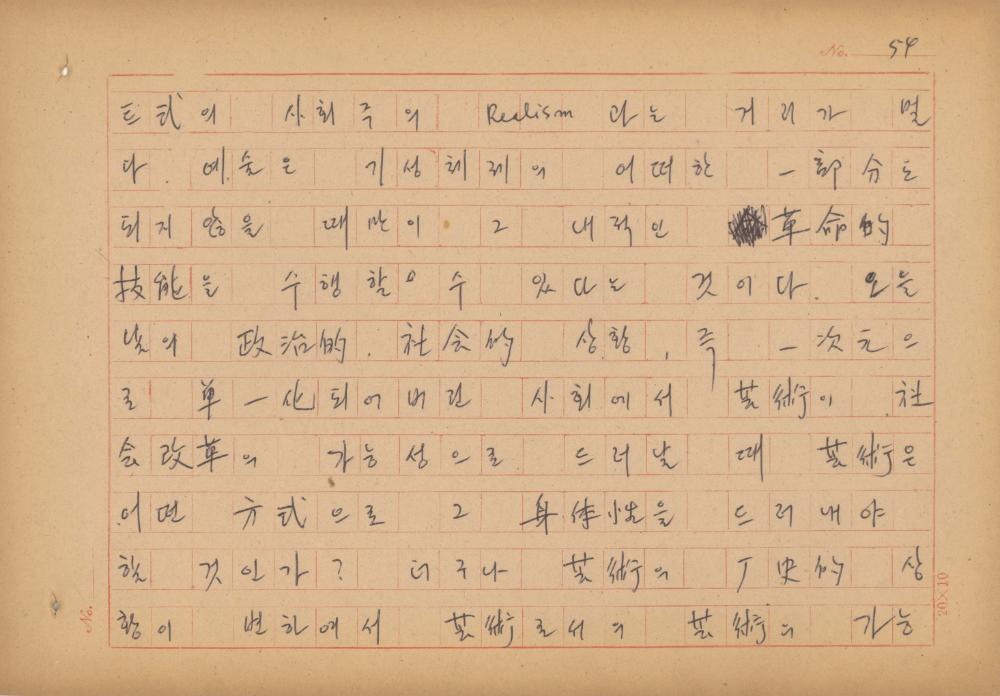 No. 54
트式의 사회주의 Realism 과는 거리가 멀
다. 예술은 기성체제의 어떠한 一部分도
되지 않을 때만이 그 내적인 革命的
技能을 수행할 수 있다는 것이다. 오늘
날의 政治的, 社会的 상황, 즉 一次元으
로 単一化되어버린 사회에서 芸術이 社
会改革의 가능성으로 드러날 때 芸術은
어떤 方式으로 그 身体性을 드러내야
할 것인가? 더구나 芸術의 丁史的 상
황이 변하에서 芸術로서의 芸術의 가능
No.
20×10